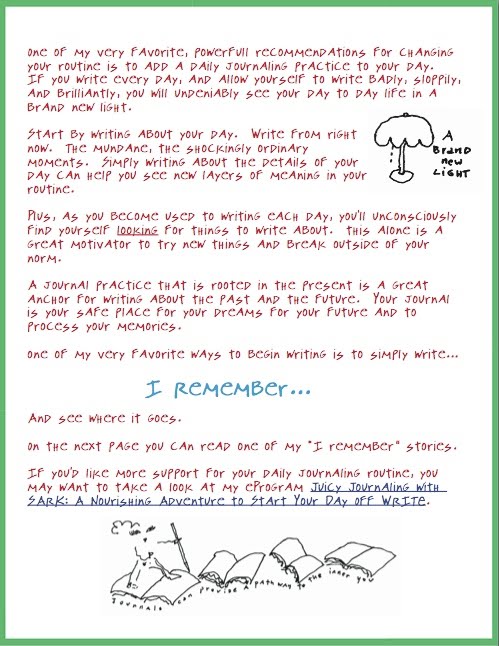 one of my very favorite, powerfull recommendations for changing
your routine is to add a daily journaling practice to your day.
If you write every day, and allow yourself to write badly, sloppily,
and brilliantly, you will undeniably see your day to day life in a
brand new light.
Start by writing about your day. Write from right
now. The mundane, the shockingly ordinary
moments. Simply writing about the details of your
day can help you see new layers of meaning in your
routine.
A
Brand
new
LiGHT
Plus, as you become used to writing each day, you'll unconsciously
find yourself looking for things to write about. this alone is a
great motivator to try new things and break outside of your
norm.
A journal practice that is rooted in the present is a great
anchor for writing about the past and the future. Your journal
is your safe place for your dreams for your future and to
process your memories.
one of my very favorite ways to begin writing is to simply write...
I remember...
And see where it goes.
on the next page you can read one of my "I remember" stories.
If you'd like more support for your daily journaling routine, you
may want to take a look at my eProgram Juicy Journaling with
SARK: A Nourishing Adventure to Start Your Day off WRITE.
Journals can provide a pathway to the inner you